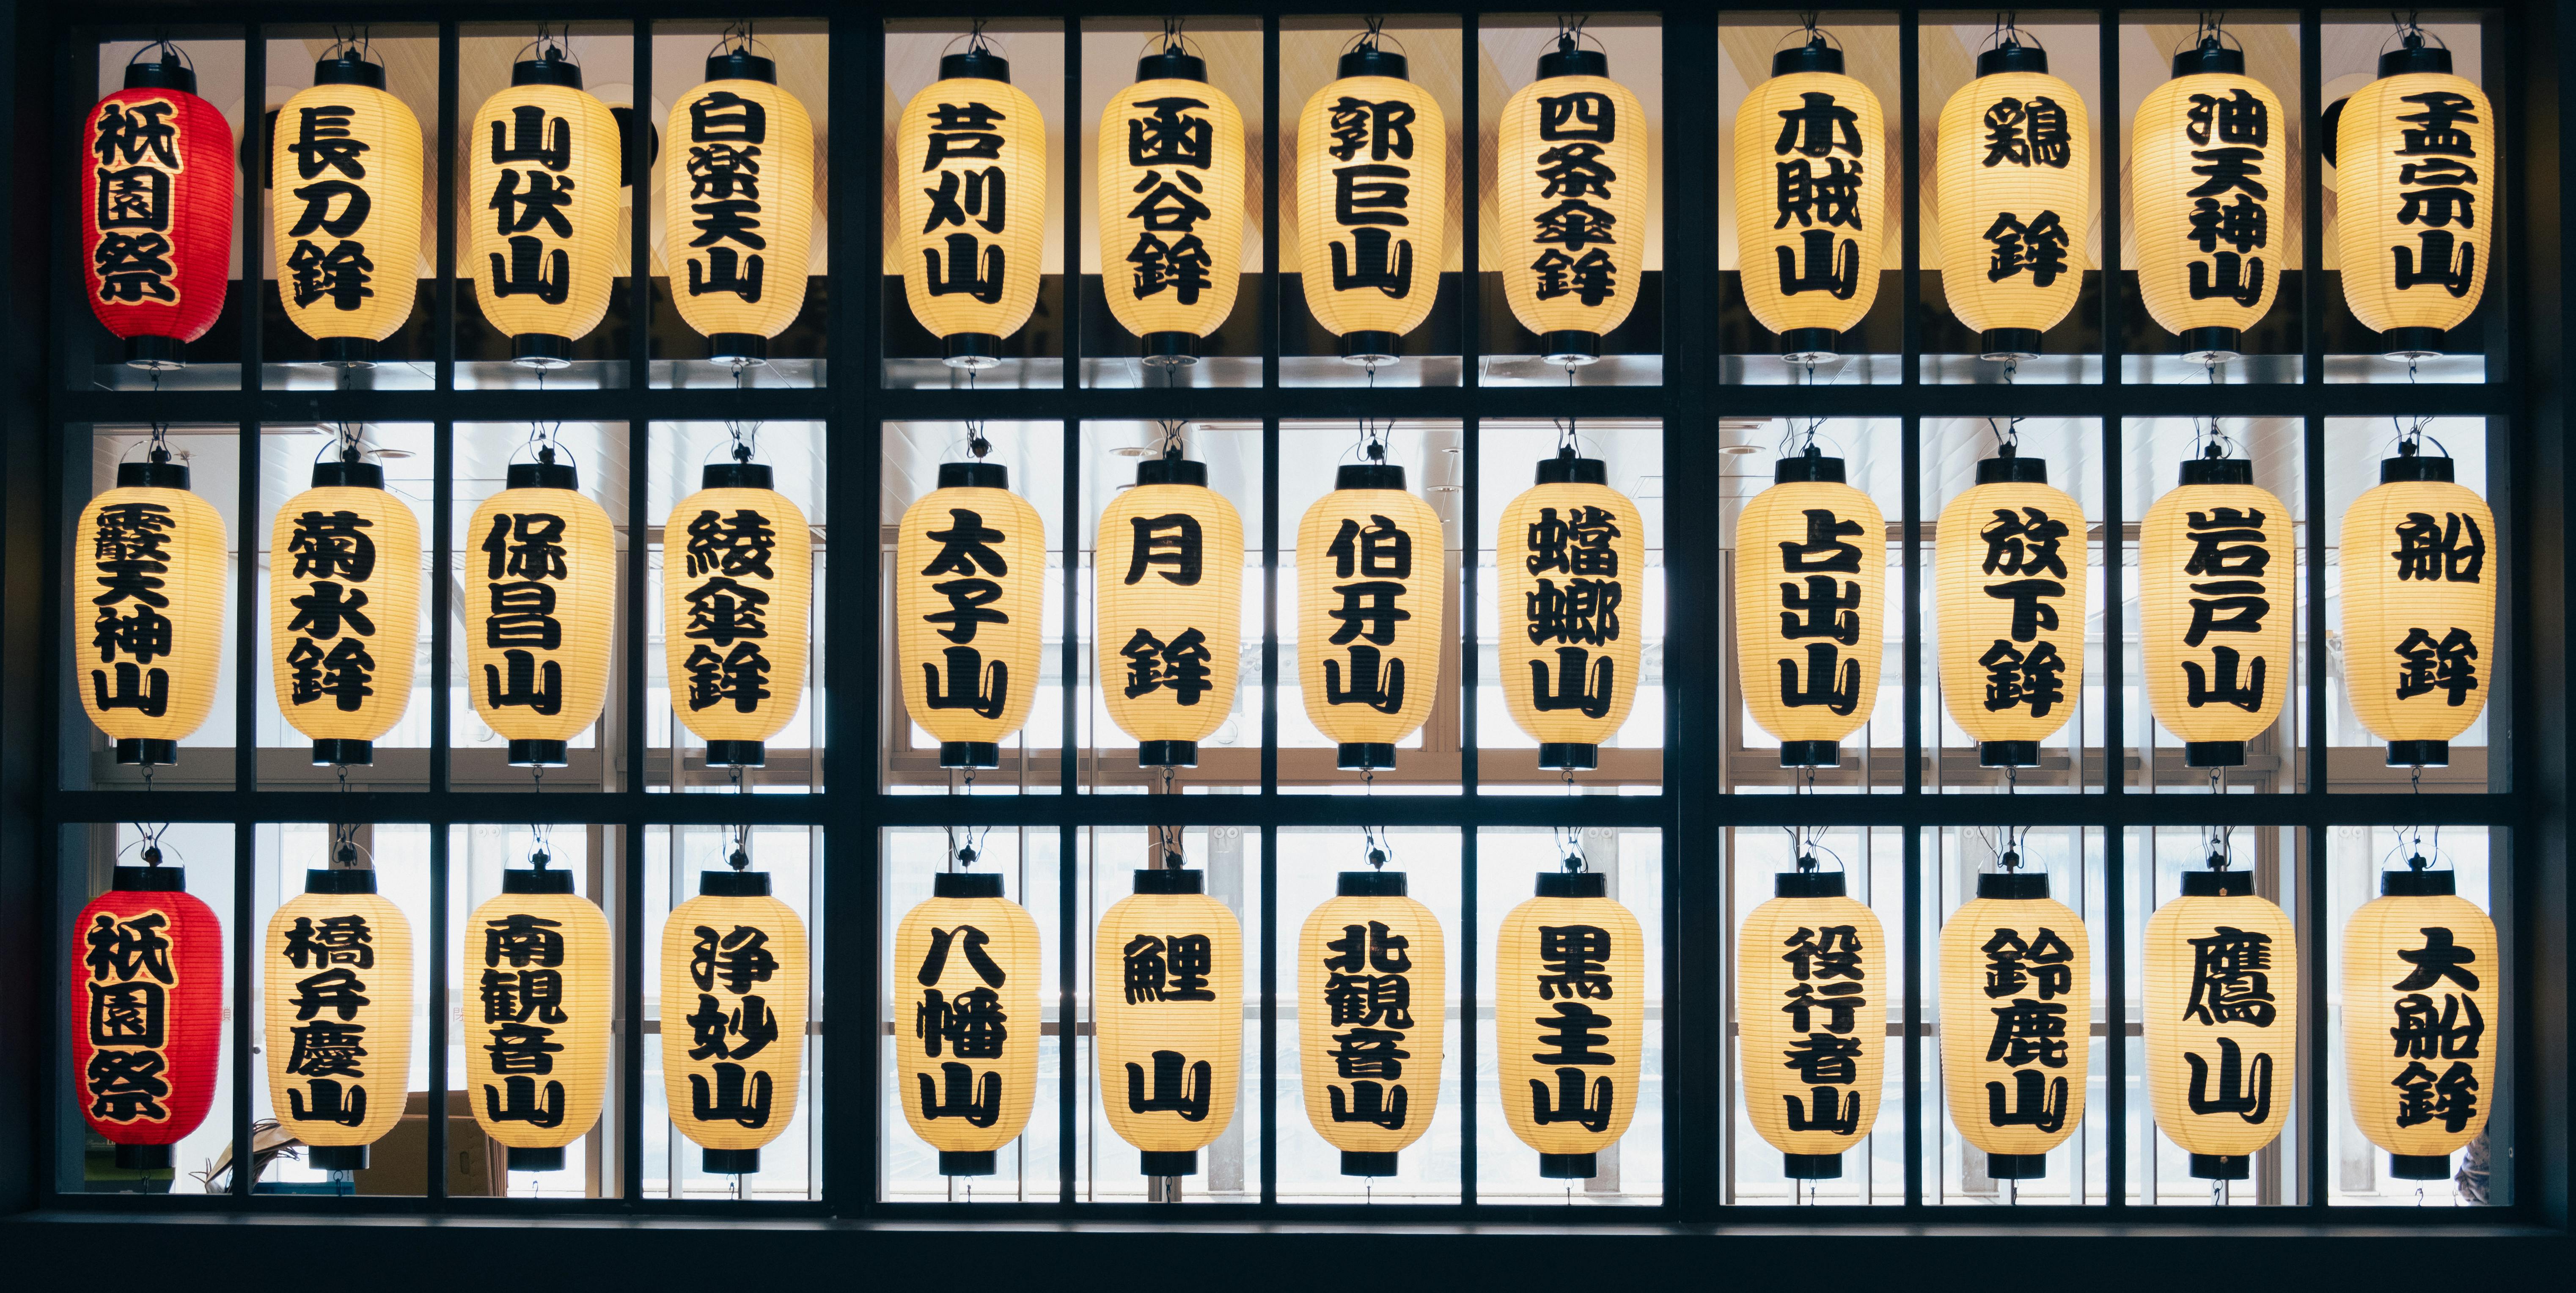 祇園祭
長刀鉾
山伏山
白楽天山
芦刈山
函谷鉾
郭巨山
四条傘鉾
木賊山
鶏鉾
油天神山
孟宗山
霰天神山
菊水鉾
保昌山
綾傘鉾
太子山
月鉾
伯牙山
蟷螂山
占出山
放下鉾
岩戸山
船鉾
祇園祭
橋弁慶山
南観音山
浄妙山
八幡山
鯉山
北観音山
黒主山
役行者山
鈴鹿山
鷹山
大船鉾